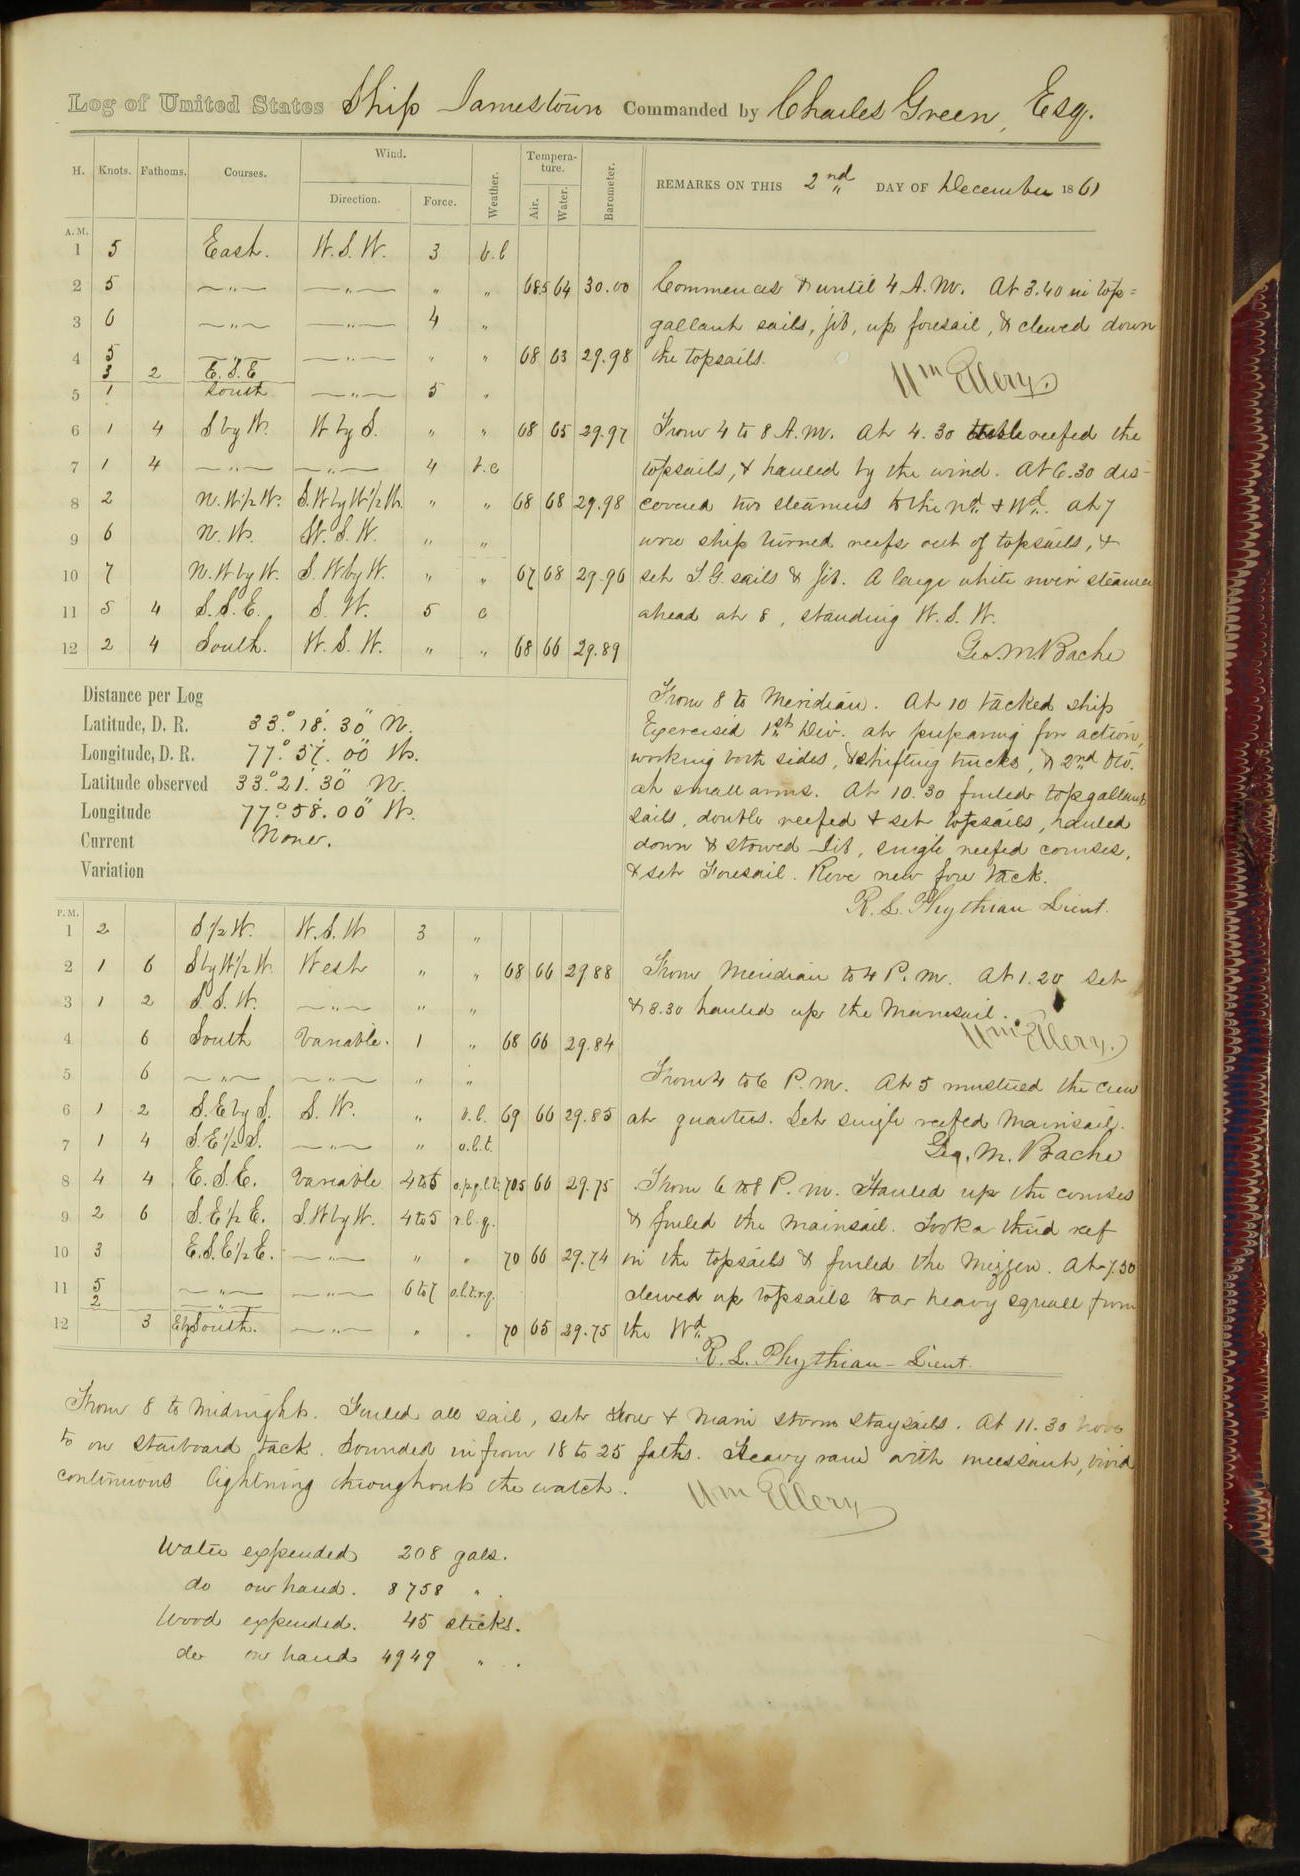 Log of United States Ship Jamestown Commanded by Charles Green, Esq.
H. Knots. Fathoms. Courses. Wind. Direction. Force. Weather. Temperature. Air. Water. Barometer.
REMARKS ON THIS 2nd DAY OF December 1861
A.M.
1 5 East. W.S.W. 3 b.c
2 5 —"— —"— " " 68.5 64 30.00
3 6 —"— —"— 4 "
4 5 —"— —"— " " 68 63 29.98
3 2 E.S.E
5 1 South —"— 5 "
6 1 4 S by W. W by S. " " 68 65 29.97
7 1 4 —"— —"— 4 b.c
8 2 N.W½W. S.W by W½W. " " 68 68 29.98
9 6 N.W. W.S.W. " "
10 7 N.W by W. S.W by W. " " 67 68 29.96
11 5 4 S.S.E. S.W. 5 c
12 2 4 South. W.S.W. " " 68 66 29.89
Commences & until 4 A.M. At 3.40 in top=
gallant sails, jib, up foresail, & clewed down
the topsails.
Wm Ellery.
From 4 to 8 A.M. At 4.30 reefed the
topsails, & hauled by the wind. At 6.30 dis-
covered two steamers to the Nd. & Wd. at 7
wore ship turned reefs out of topsails, &
set T.G. sails & jib. A large white river steamer
ahead at 8, standing W.S.W.
Geo. M. Bache
Distance per Log
Latitude, D. R. 33° 18' 30" N.
Longitude, D. R. 77° 57' 00" W.
Latitude observed 33° 21' 30" N.
Longitude 77° 58' 00" W.
Current None.
Variation
From 8 to Meridian. At 10 tacked ship
Exercised 1st Div. at preparing for action,
working both sides, & shifting trucks, & 2nd Div.
at small arms. At 10.30 furled topgallant
sails, double reefed & set topsails, hauled
down & stowed Jib, single reefed courses,
& set Foresail. Rove new fore tack.
R. L. Phythian Lieut.
P.M.
1 2 S½W. W.S.W 3 "
2 1 6 S by W½W West " " 68 66 29.88
3 1 2 S.S.W. —"— " "
4 6 South Variable. 1 " 68 66 29.84
5 6 —"— —"— " "
6 1 2 S.E by S. S.W. " o.l. 69 66 29.85
7 1 4 S.E½S. —"— " o.l.t.
8 4 4 E.S.E. Variable 4 to 5 o.p.q.l.t. 70.5 66 29.75
9 2 6 S.E½E. S.W by W. 4 to 5 r.l.q.
10 3 E.S.E½E. —"— " " 70 66 29.74
11 5 —"— —"— 6 to 7 o.l.t.r.q.
2 —"—
12 3 E by South. —"— " " 70 65 29.75
From Meridian to 4 P.M. At 1.20 set
& 3.30 hauled up the Mainsail.
Wm Ellery.
From 4 to 6 P.M. At 5 mustered the crew
at quarters. Set single reefed Mainsail.
Geo. M. Bache
From 6 to 8 P.M. Hauled up the courses
& furled the mainsail. Took a third reef
in the topsails & furled the Mizzen. At 7.50
clewed up topsails to a heavy squall from
the Wd.
R. L. Phythian - Lieut.
From 8 to Midnight. Furled all sail, set Fore & Main storm staysails. At 11.30 hove
to on starboard tack. Sounded in from 18 to 25 faths. Heavy rain with incessant, vivid
continuous lightning throughout the watch.
Wm Ellery
Water expended 208 gals.
do on hand. 8758 " .
Wood expended. 45 sticks.
do on hand 4949 " .